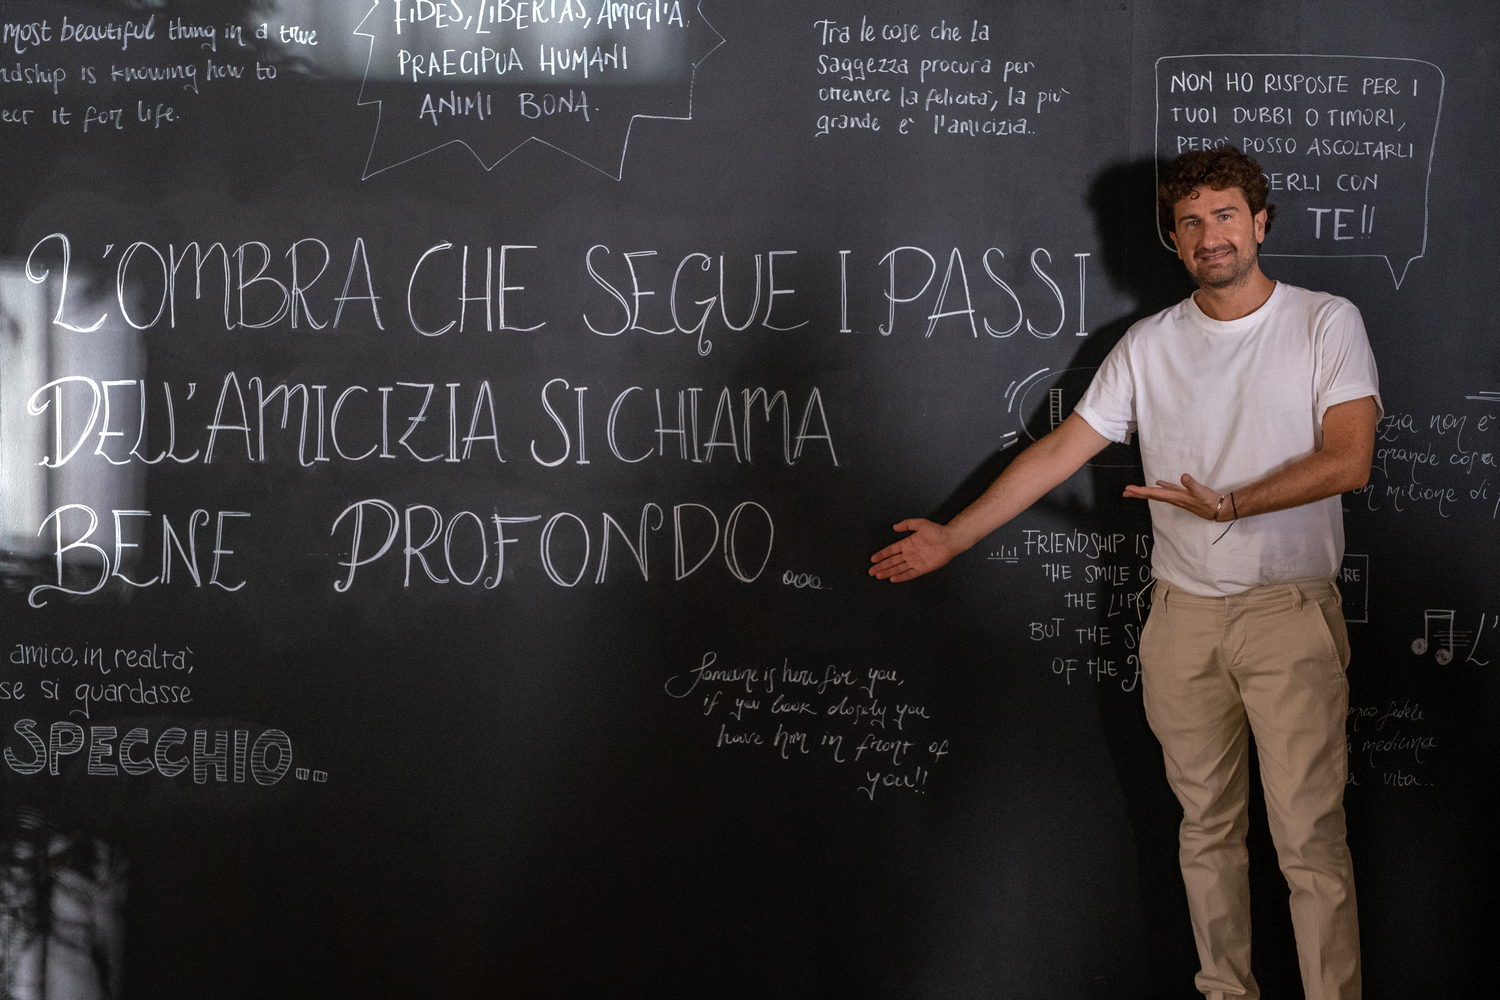 most beautiful thing in a true
ndship is knowing how to
ecr it for life.
FIDES, LIBERTAS, AMICITIA,
PRAECIPUA HUMANI
ANIMI BONA.
Tra le cose che la
saggezza procura per
ottenere la felicità, la più
grande è l'amicizia..
NON HO RISPOSTE PER I
TUOI DUBBI O TIMORI,
PERÒ POSSO ASCOLTARLI
DERLI CON
TE!!
L'OMBRA CHE SEGUE I PASSI
DELL'AMICIZIA SI CHIAMA
BENE PROFONDO...
zia non è
grande cosa
un milione di
FRIENDSHIP IS
THE SMILE O
THE LIPS,
BUT THE
OF THE
ARE
L'
amico, in realtà,
se si guardasse
SPECCHIO...
Someone is here for you,
if you look closely you
have him in front of
you!!
fedele
medicina
vita..